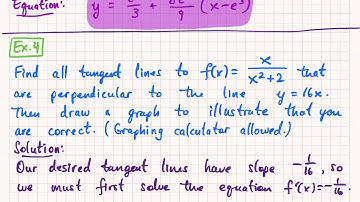 Equation:
y = /3 + /9 (x-e³)
Ex.4
Find all tangent lines to f(x) = x/(x²+2) that
are perpendicular to the line y=16x.
Then draw a graph to illustrate that you
are correct. (Graphing calculator allowed.)
Solution:
Our desired tangent lines have slope -1/16, so
we must first solve the equation f'(x)=-1/16.